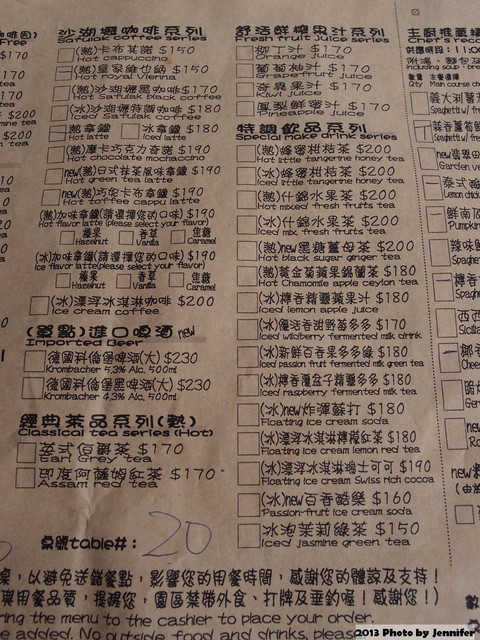 沙湖瀝咖啡系列
Safulak coffee series
(熱)卡布其諾 $150
Hot cappuccino
(熱)皇家維也納 $150
Hot royal Vienna
(熱)沙湖瀝黑咖啡 $170
Hot Safulak black coffee
(冰)沙湖瀝特調咖啡 $180
Iced Safulak coffee
熱拿鐵 冰拿鐵 $180
Hot latte Iced latte
(熱)摩卡巧克力奇諾 $190
Hot chocolate mochaccino
new(熱)日式抹茶風味拿鐵 $190
Hot green tea latte
new(熱)巧安卡布拿鐵 $190
Hot toffee capu latte
(熱)加味拿鐵(請選擇您的口味) $190
Hot flavor latte(please select your flavor)
榛果 香草 焦糖
Hazelnut Vanilla Caramel
(冰)加味拿鐵(請選擇您的口味) $190
Ice flavor latte(please select your flavor)
榛果 香草 焦糖
Hazelnut Vanilla Caramel
(冰)漂浮冰淇淋咖啡 $200
Ice cream coffee
(單點)進口啤酒 new
Imported Beer
德國科倫堡啤酒(大) $230
Krombacher 5,3% Alc, 500ml
德國科倫堡黑啤酒(大) $230
Krombacher 4,3% Alc, 500ml
經典茶品系列(熱)
Classical tea series (Hot)
英式伯爵茶 $170
Earl Grey tea
印度阿薩姆紅茶 $170
Assam red tea
桌號table#: 20
舒活鮮榨果汁系列
Fresh fruit juice series
柳丁汁 $170
Orange juice
葡萄柚汁 $170
Grapefruit juice
奇異果汁 $170
Kiwi juice
鳳梨鮮蜜汁 $170
Pineapple juice
特調飲品系列
Special make drink series
(熱)蜂蜜柑桔茶 $200
Hot little tangerine honey tea
(冰)蜂蜜柑桔茶 $200
Iced little tangerine honey tea
(熱)什錦水果茶 $200
Hot mixed fresh fruits tea
(冰)什錦水果茶 $200
Iced mix fresh fruits tea
(熱)new黑糖薑母茶 $200
Hot black sugar ginger tea
(熱)黃金葛蘋果錫蘭茶 $180
Hot Chamomile apple ceylon tea
(冰)檸香精靈蘋果汁 $180
Iced lemon apple juice
(冰)優活香甜莓多多 $170
Iced wildberry fermented milk drink
(冰)新鮮百香果多多綠 $180
Iced passion fruit fermented milk green tea
(冰)檸香覆盆子精靈多多 $180
Iced raspberry fermented milk tea
(冰)new炸彈蘇打 $180
Floating ice cream soda
(冰)漂浮冰淇淋檸檬紅茶 $180
Floating ice cream lemon red tea
(冰)漂浮冰淇淋瑞士可可 $190
Floating ice cream Swiss rich cocoa
(冰)new百香酷樂 $160
Passion-fruit ice cream soda
冰泡茉莉綠茶 $150
Iced jasmine green tea
桌,以避免送錯餐點,影響您的用餐時間,感謝您的體諒及支持!
用餐品質,提醒您,園區禁帶外食、打牌及垂釣喔!感謝您!)
ring the menu to the cashier to place your order.
e added. No outside food and drinks, pleas
2013 Photo by Jennifer